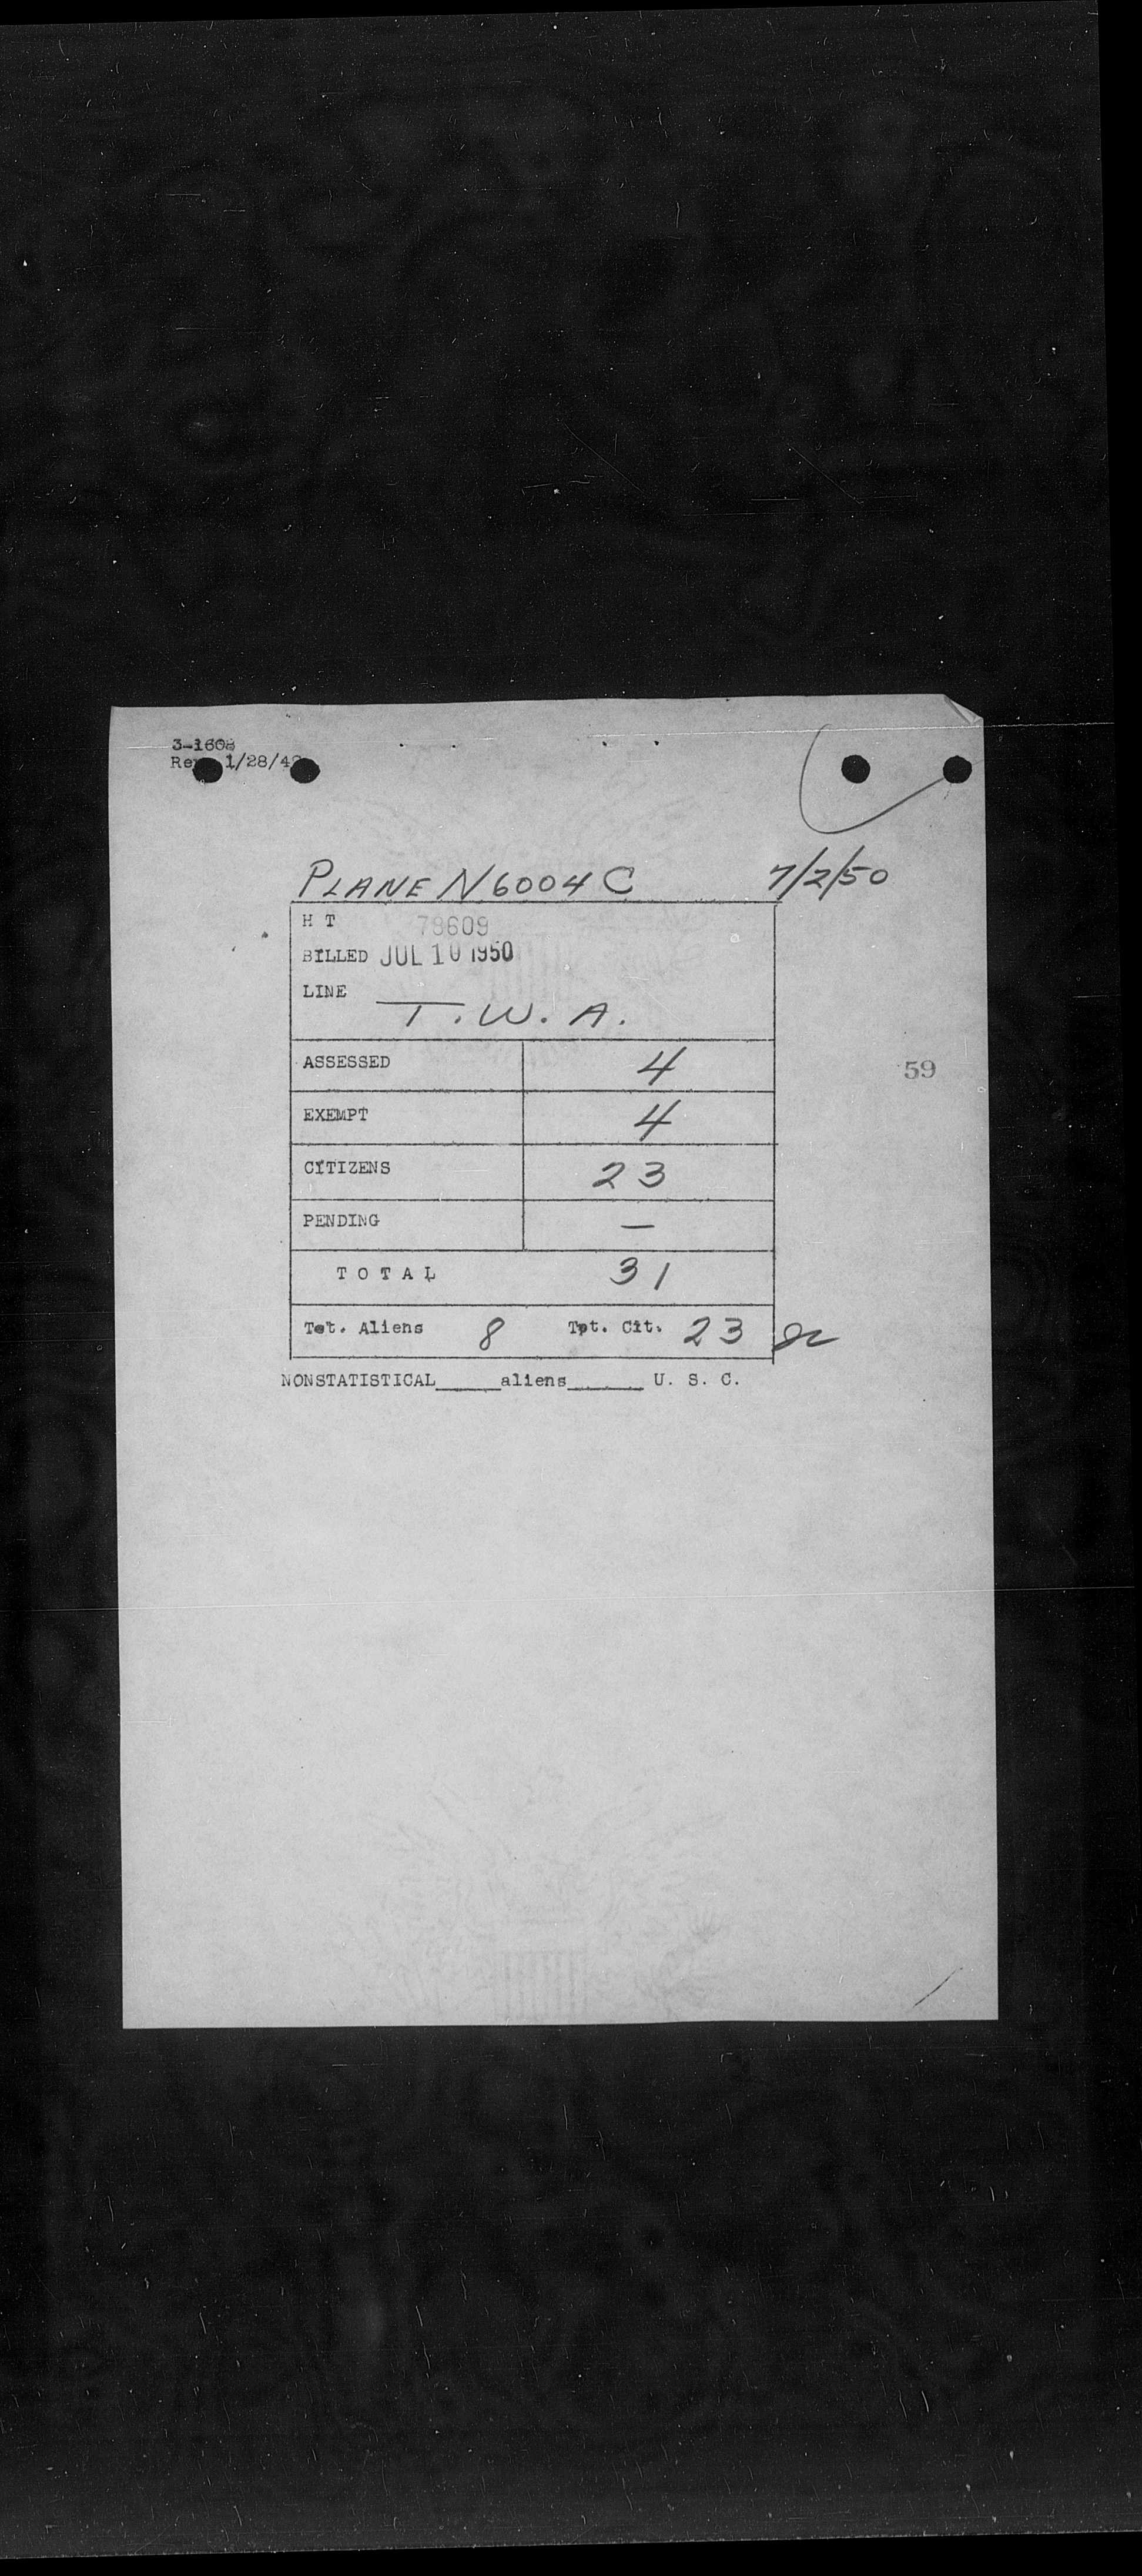 3-1608
Rev. 1/28/48
PLANE N6004C 7/2/50
H T 79609
BILLED JUL 10 1950
LINE T.W.A.
59
ASSESSED 4
EXEMPT 4
CITIZENS 23
PENDING —
TOTAL 31
Tot. Aliens 8 Tpt. Cit. 23
NONSTATISTICAL_____aliens______ U. S. C.